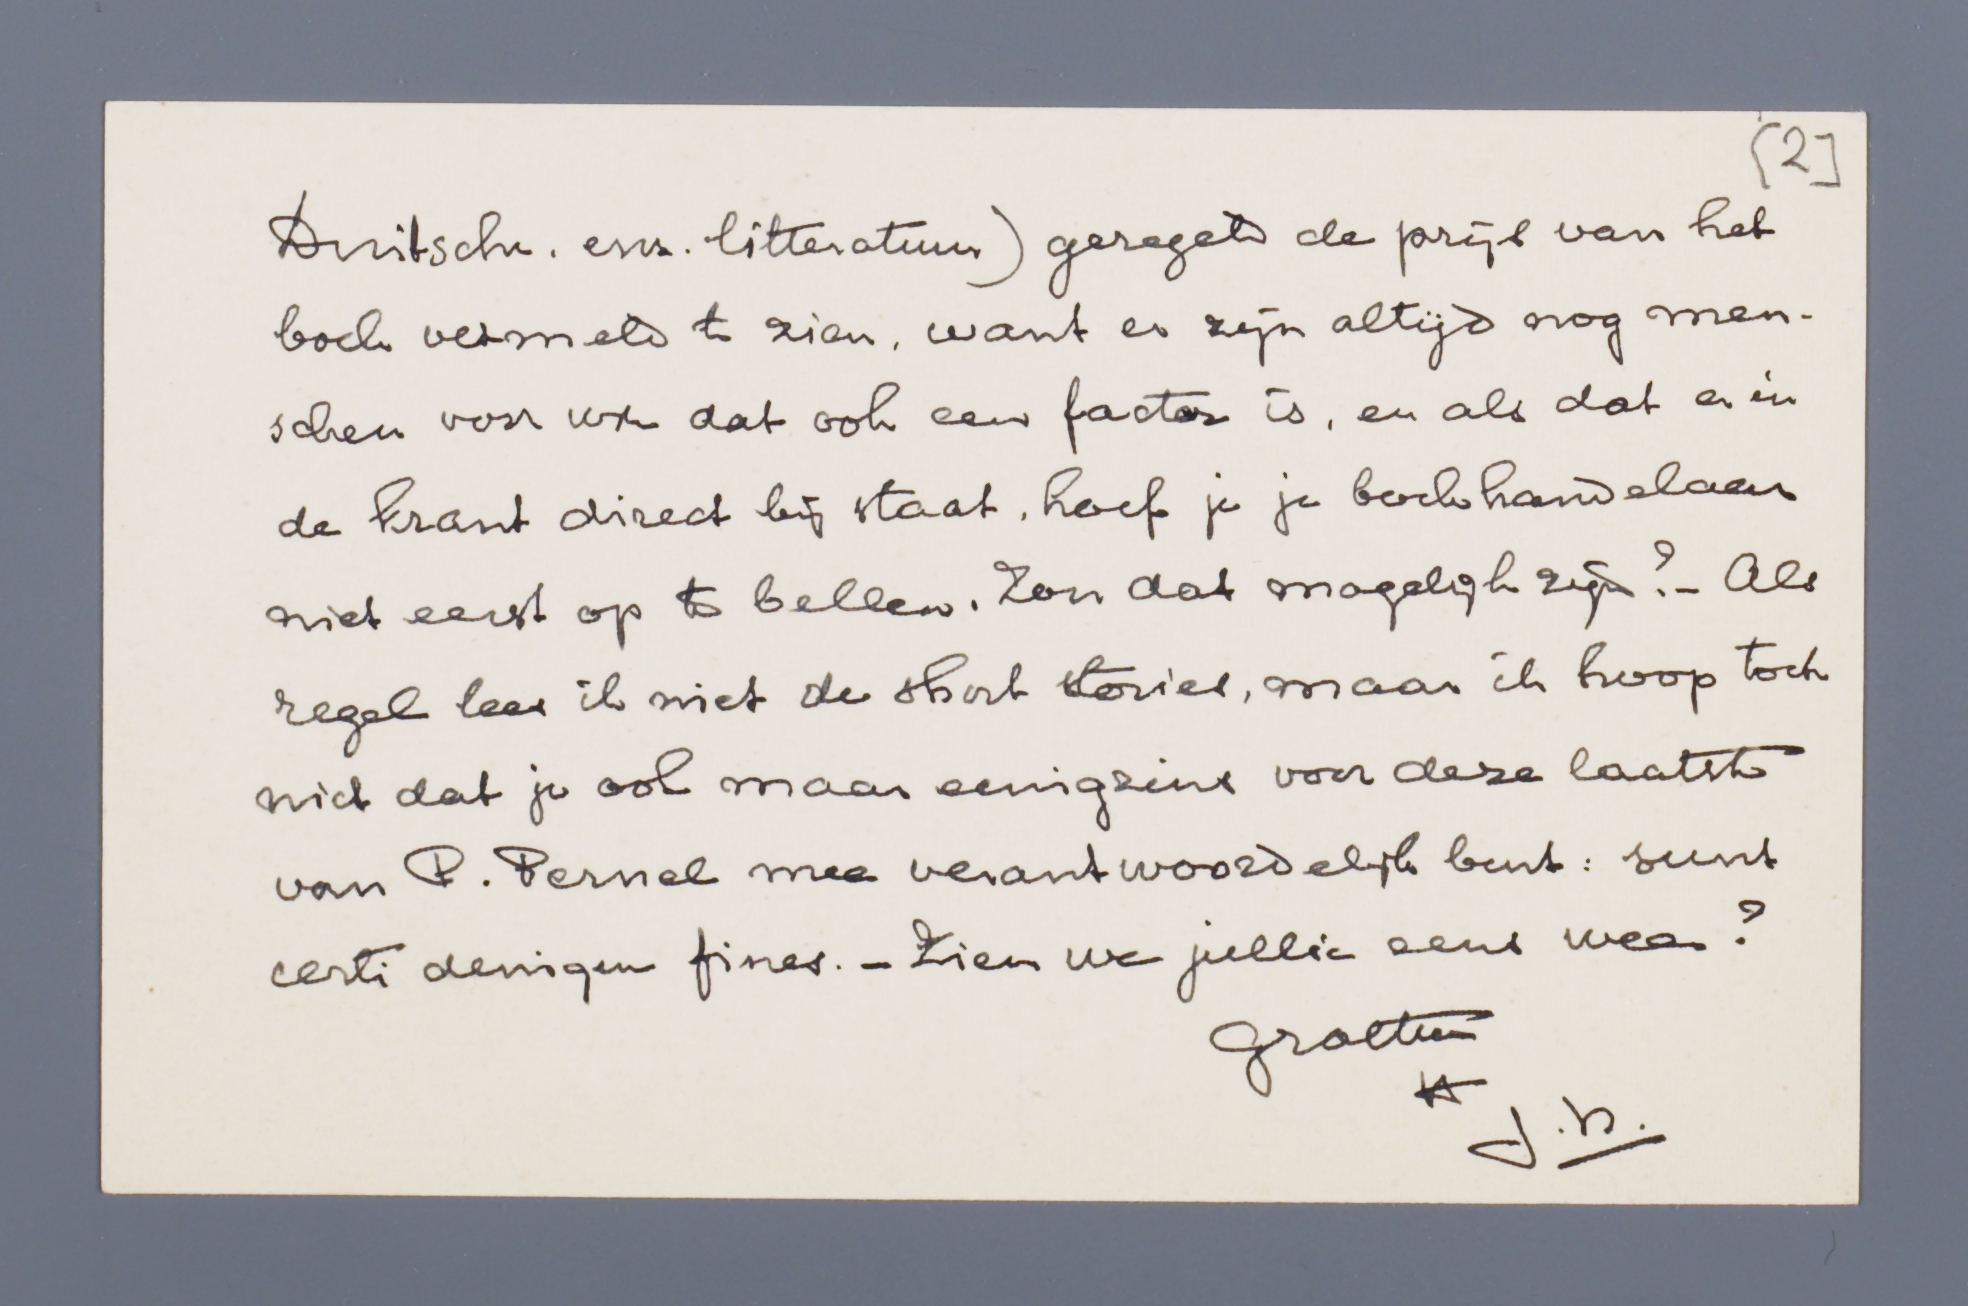 [2]
Duitsche. enz. litteratuur) geregeld de prijs van het
boek vermeld te zien, want er zijn altijd nog men-
schen voor wie dat ook een factor is, en als dat er in
de krant direct bij staat, hoef je je boekhandelaar
niet eerst op te bellen. Zou dat mogelijk zijn? - Als
regel lees ik niet de short stories, maar ik hoop toch
niet dat je ook maar eenigzins voor deze laatste
van P. Pernel mee verantwoordelijk bent: sunt
certi denique fines. - Zien we jullie eens weer?
Groeten
J.B.